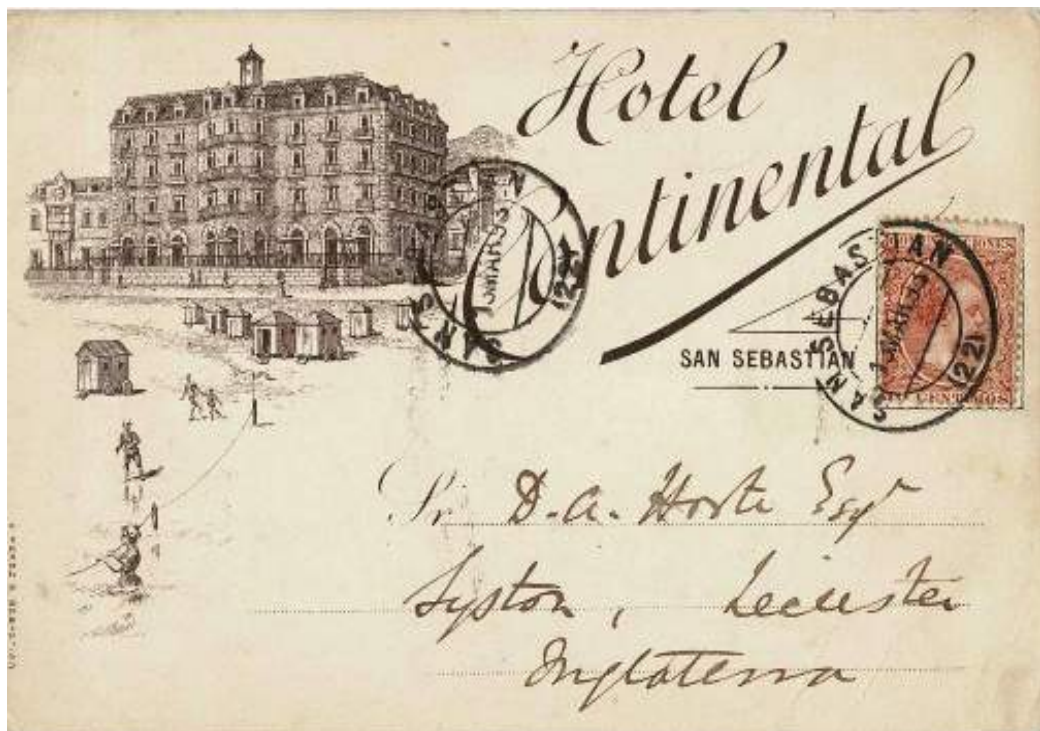 Hotel
Continental
SAN SEBASTIAN
SAN SEBASTIAN
(22)
SAN SEBASTIAN
(22)
CENTIMOS
Sr. D. A. Esqr
Syston, Leicester
Inglaterra